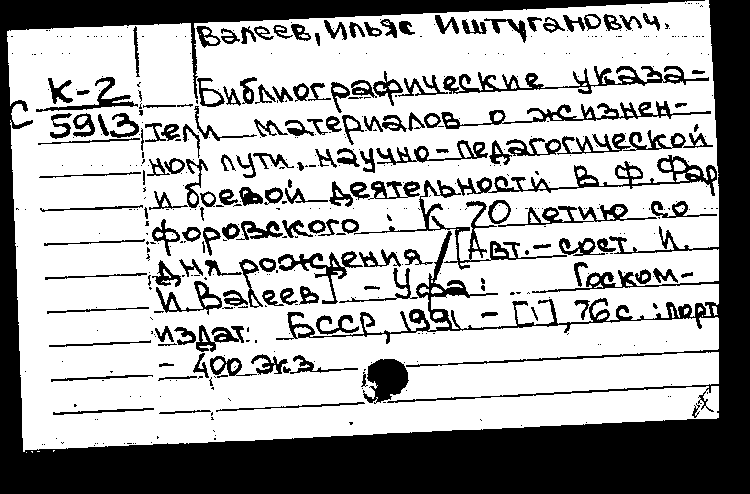 Валеев, Ильяс Иштуганович.
К-2
С 5913
Библиографические указа-
тели материалов о жизнен-
ном пути, научно-педагогической
и боевой деятельности В.Ф.Фар
форовского : К 70 летию со
дня рождения / [Авт.-сост. И.
И. Валеев]. - Уфа : Госком-
издат. БССР, 1991. - [1], 76 с. : порт
- 400 экз.